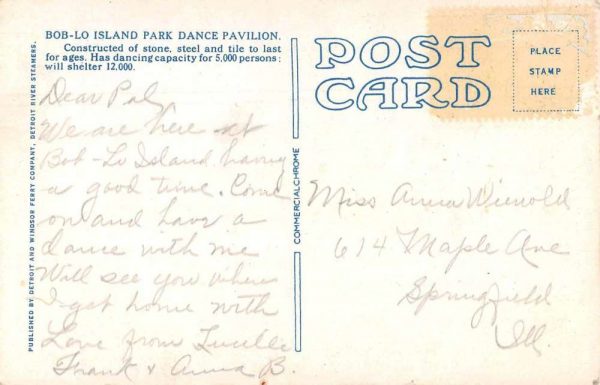 BOB-LO ISLAND PARK DANCE PAVILION.
Constructed of stone, steel and tile to last
for ages. Has dancing capacity for 5,000 persons;
will shelter 12,000.
PUBLISHED BY DETROIT AND WINDSOR FERRY COMPANY, DETROIT RIVER STEAMERS.
Dear Pal,
We are here at
Bob-Lo Island having
a good time. Come
on and have a
dance with me
Will see you when
I get home with
Love from Lucille
Frank & Anna B.
COMMERCIALCHROME
POST
CARD
PLACE
STAMP
HERE
Miss Anna Wienold
614 Maple Ave
Springfield
Ill.